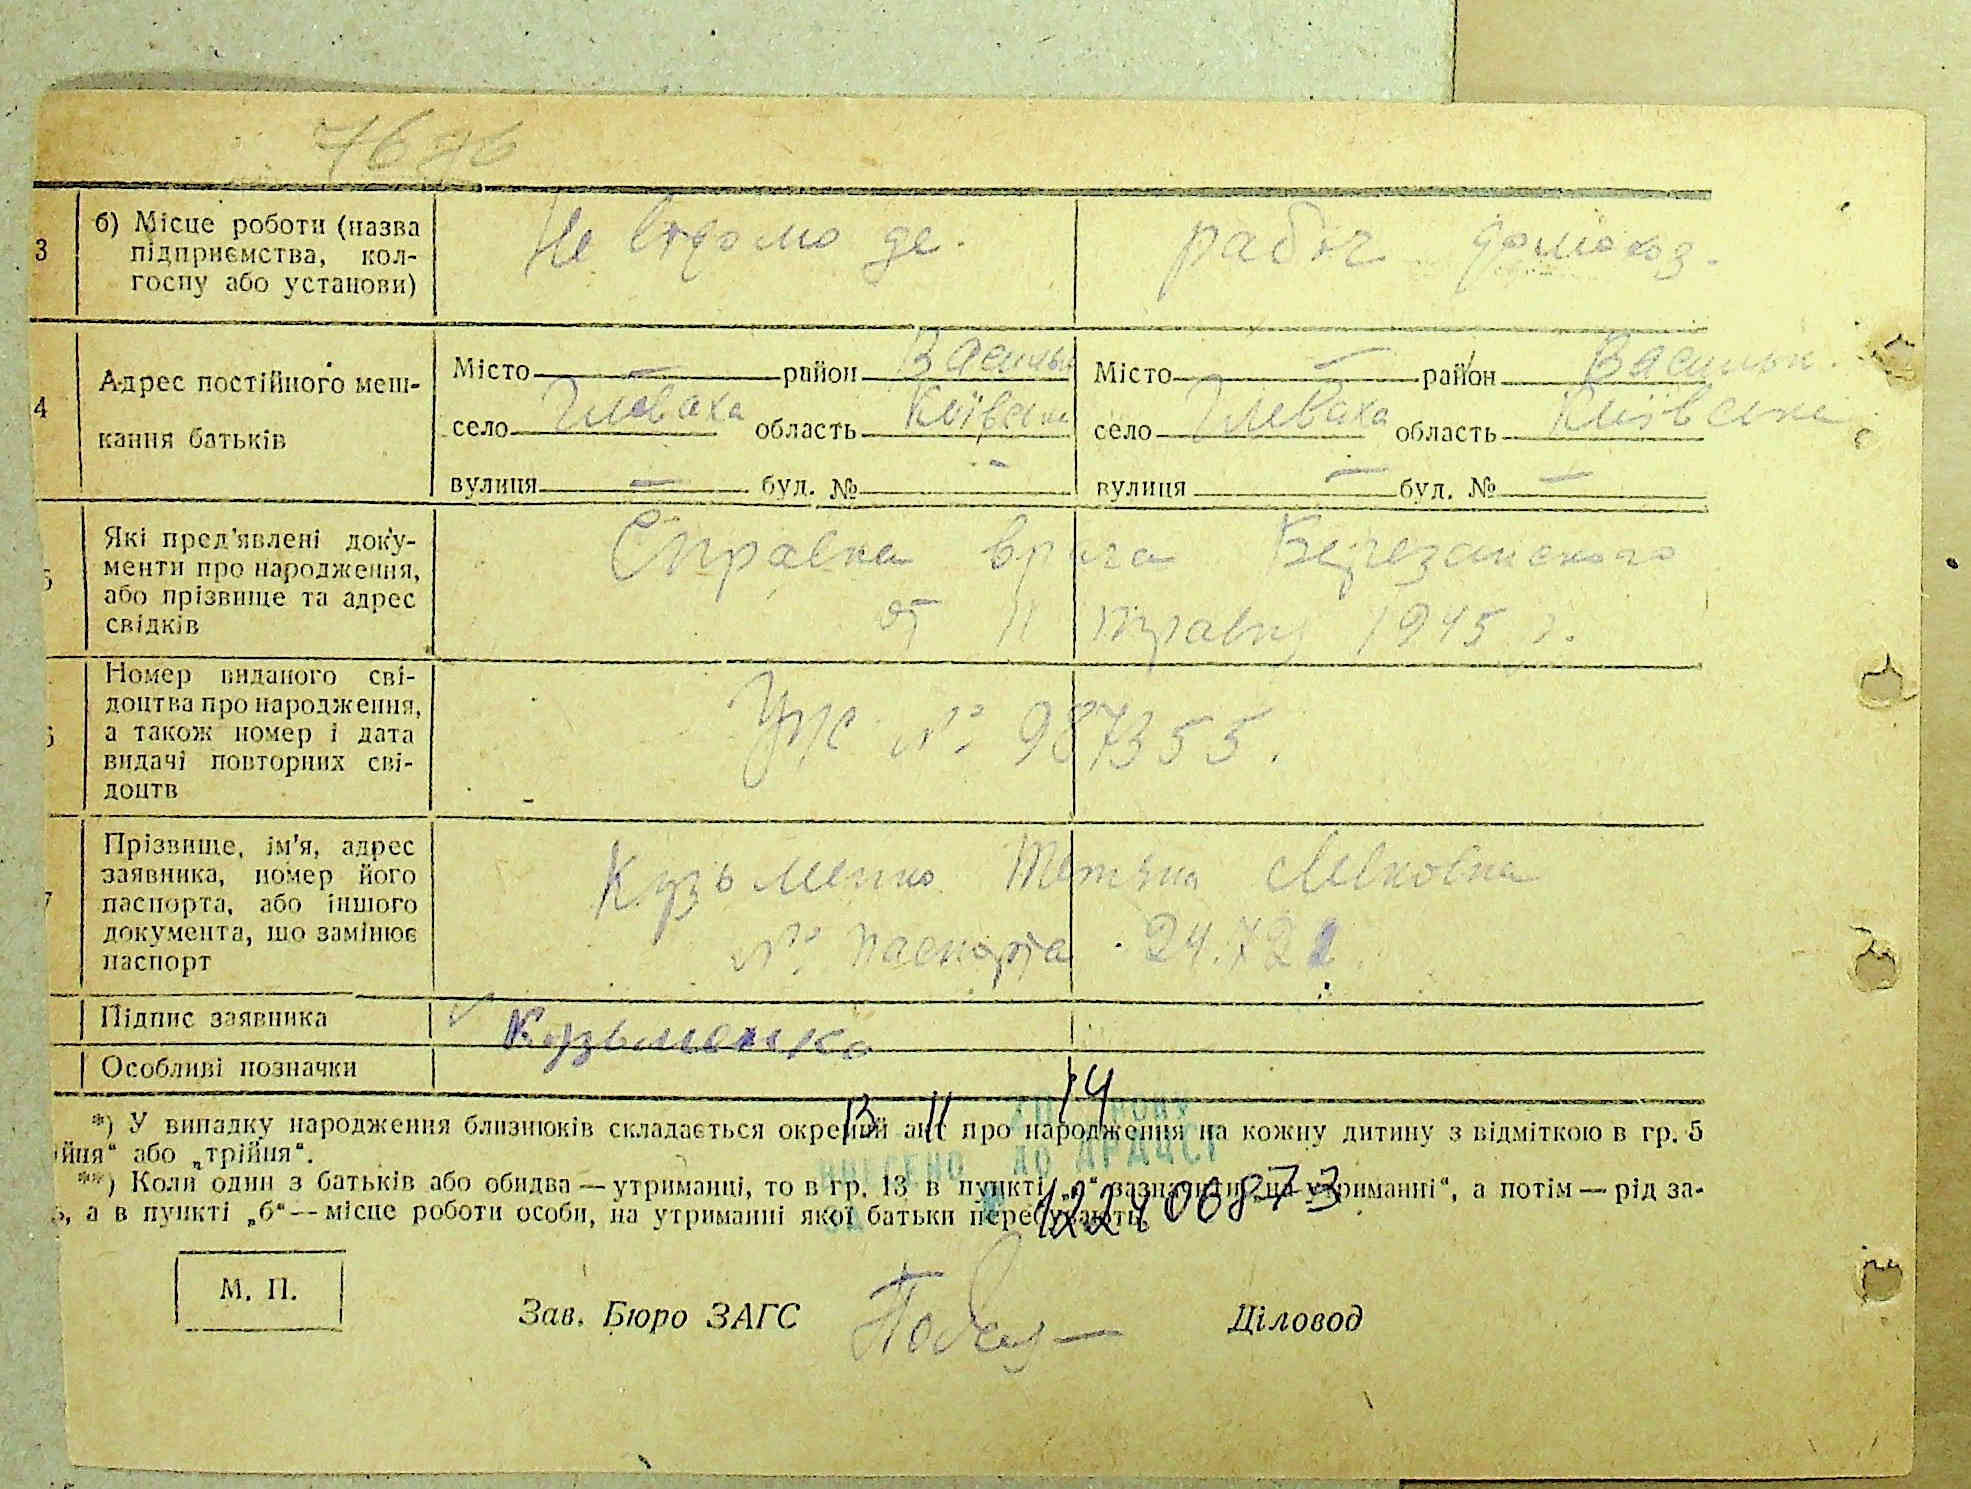 7676
3 б) Місце роботи (назва
підприємства, кол-
госпу або установи)
Не відомо де.
рабоч домохоз.
4 Адрес постійного меш-
кання батьків
Місто — район Васильк
село Глеваха область Київська
вулиця — буд. № —
Місто — район Васильк.
село Глеваха область Київська
вулиця — буд. № —
5 Які пред'явлені доку-
менти про народження,
або прізвище та адрес
свідків
Справка врача Березанского
от 11 травня 1945 г.
6 Номер виданого сві-
доцтва про народження,
а також номер і дата
видачі повторних сві-
доцтв
УЖ № 987355.
7 Прізвище, ім'я, адрес
заявника, номер його
паспорта, або іншого
документа, що замінює
паспорт
Кузьменко Тетяна
№ паспорта 24.721
Підпис заявника
Кузьменко
Особливі позначки
13 11 14
*) У випадку народження близнюків складається окремий акт про народження на кожну дитину з відміткою в гр. 5
ійня" або „трійня".
**) Коли один з батьків або обидва — утриманці, то в гр. 13 в пункті зазначити „на утриманні", а потім — рід за-
, а в пункті „б" — місце роботи особи, на утриманні якої батьки перебувають.
ВНЕСЕНО ДО ДРАЦСГ
00873
М. П.
Зав. Бюро ЗАГС
Діловод